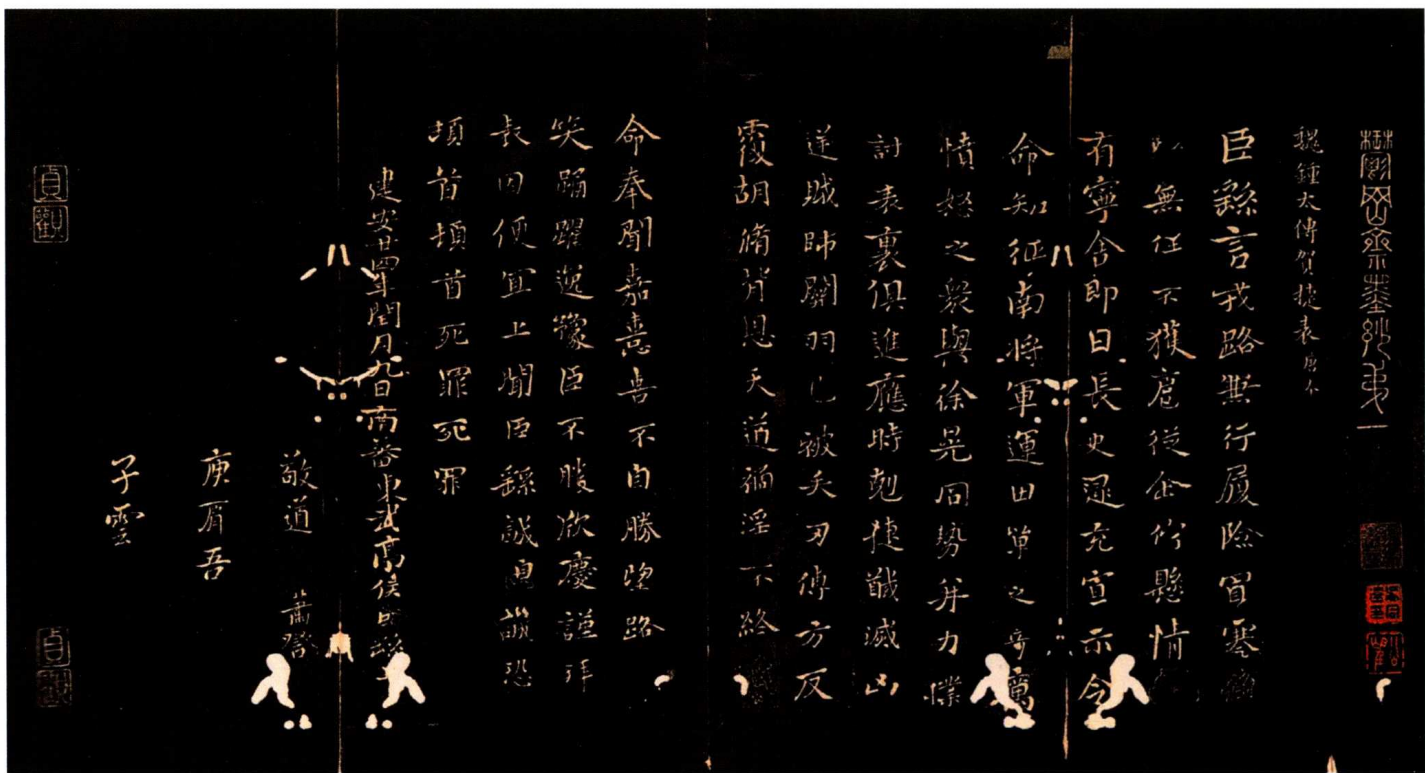 鬱岡齋墨妙弟一
魏鍾太傅賀捷表 唐本
臣繇言戎路兼行履險冒寒
以無任不獲扈從企佇懸情
有寧舍即日長史逯充宣示令
命知征南將軍運田單之奇厲
憤怒之衆與徐晃同勢并力撲
討表裏俱進應時剋捷馘滅凶
逆賊帥關羽已被矢刃傅方反
覆胡脩背恩天道禍淫不終
命奉聞嘉憙喜不自勝望路
笑踊躍逸豫臣不勝欣慶謹拜
表因便宜上聞臣繇誠惶誠恐
頓首頓首死罪死罪
建安廿四年閏月九日南蕃東武亭侯臣繇上
敬道 蕭
庾肩吾
子雲
貞觀
貞觀